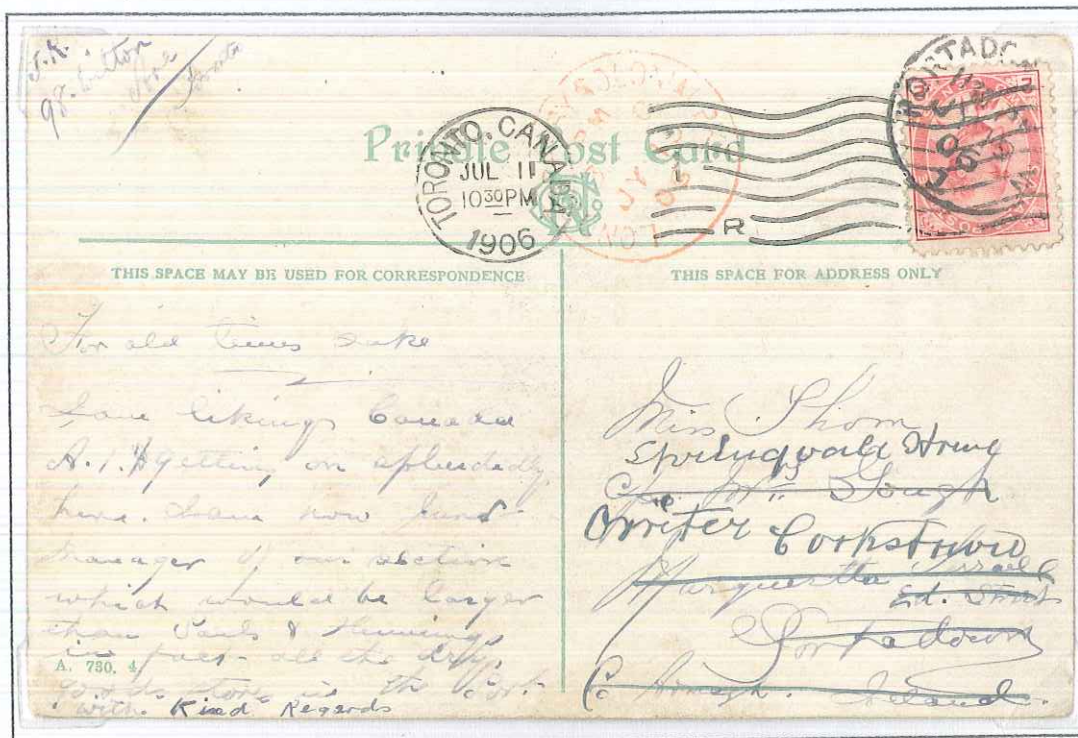 J.R.
98.
Private Post Card
TORONTO, CANADA
JUL 11
10 30 PM
1906
R
PORTADOWN
JY
06
THIS SPACE MAY BE USED FOR CORRESPONDENCE
THIS SPACE FOR ADDRESS ONLY
For old times sake
I am liking Canada
A.1. & getting on splendidly
here. I am now
manager of our section
which would be larger
than &
in fact all the dry
goods store in the
with Kind Regards
A. 730. 4
Miss Thom
Springvale
c/o Gough
Cookstown
Marguerita
Ed. Street
Portadown
Co Armagh. Ireland.